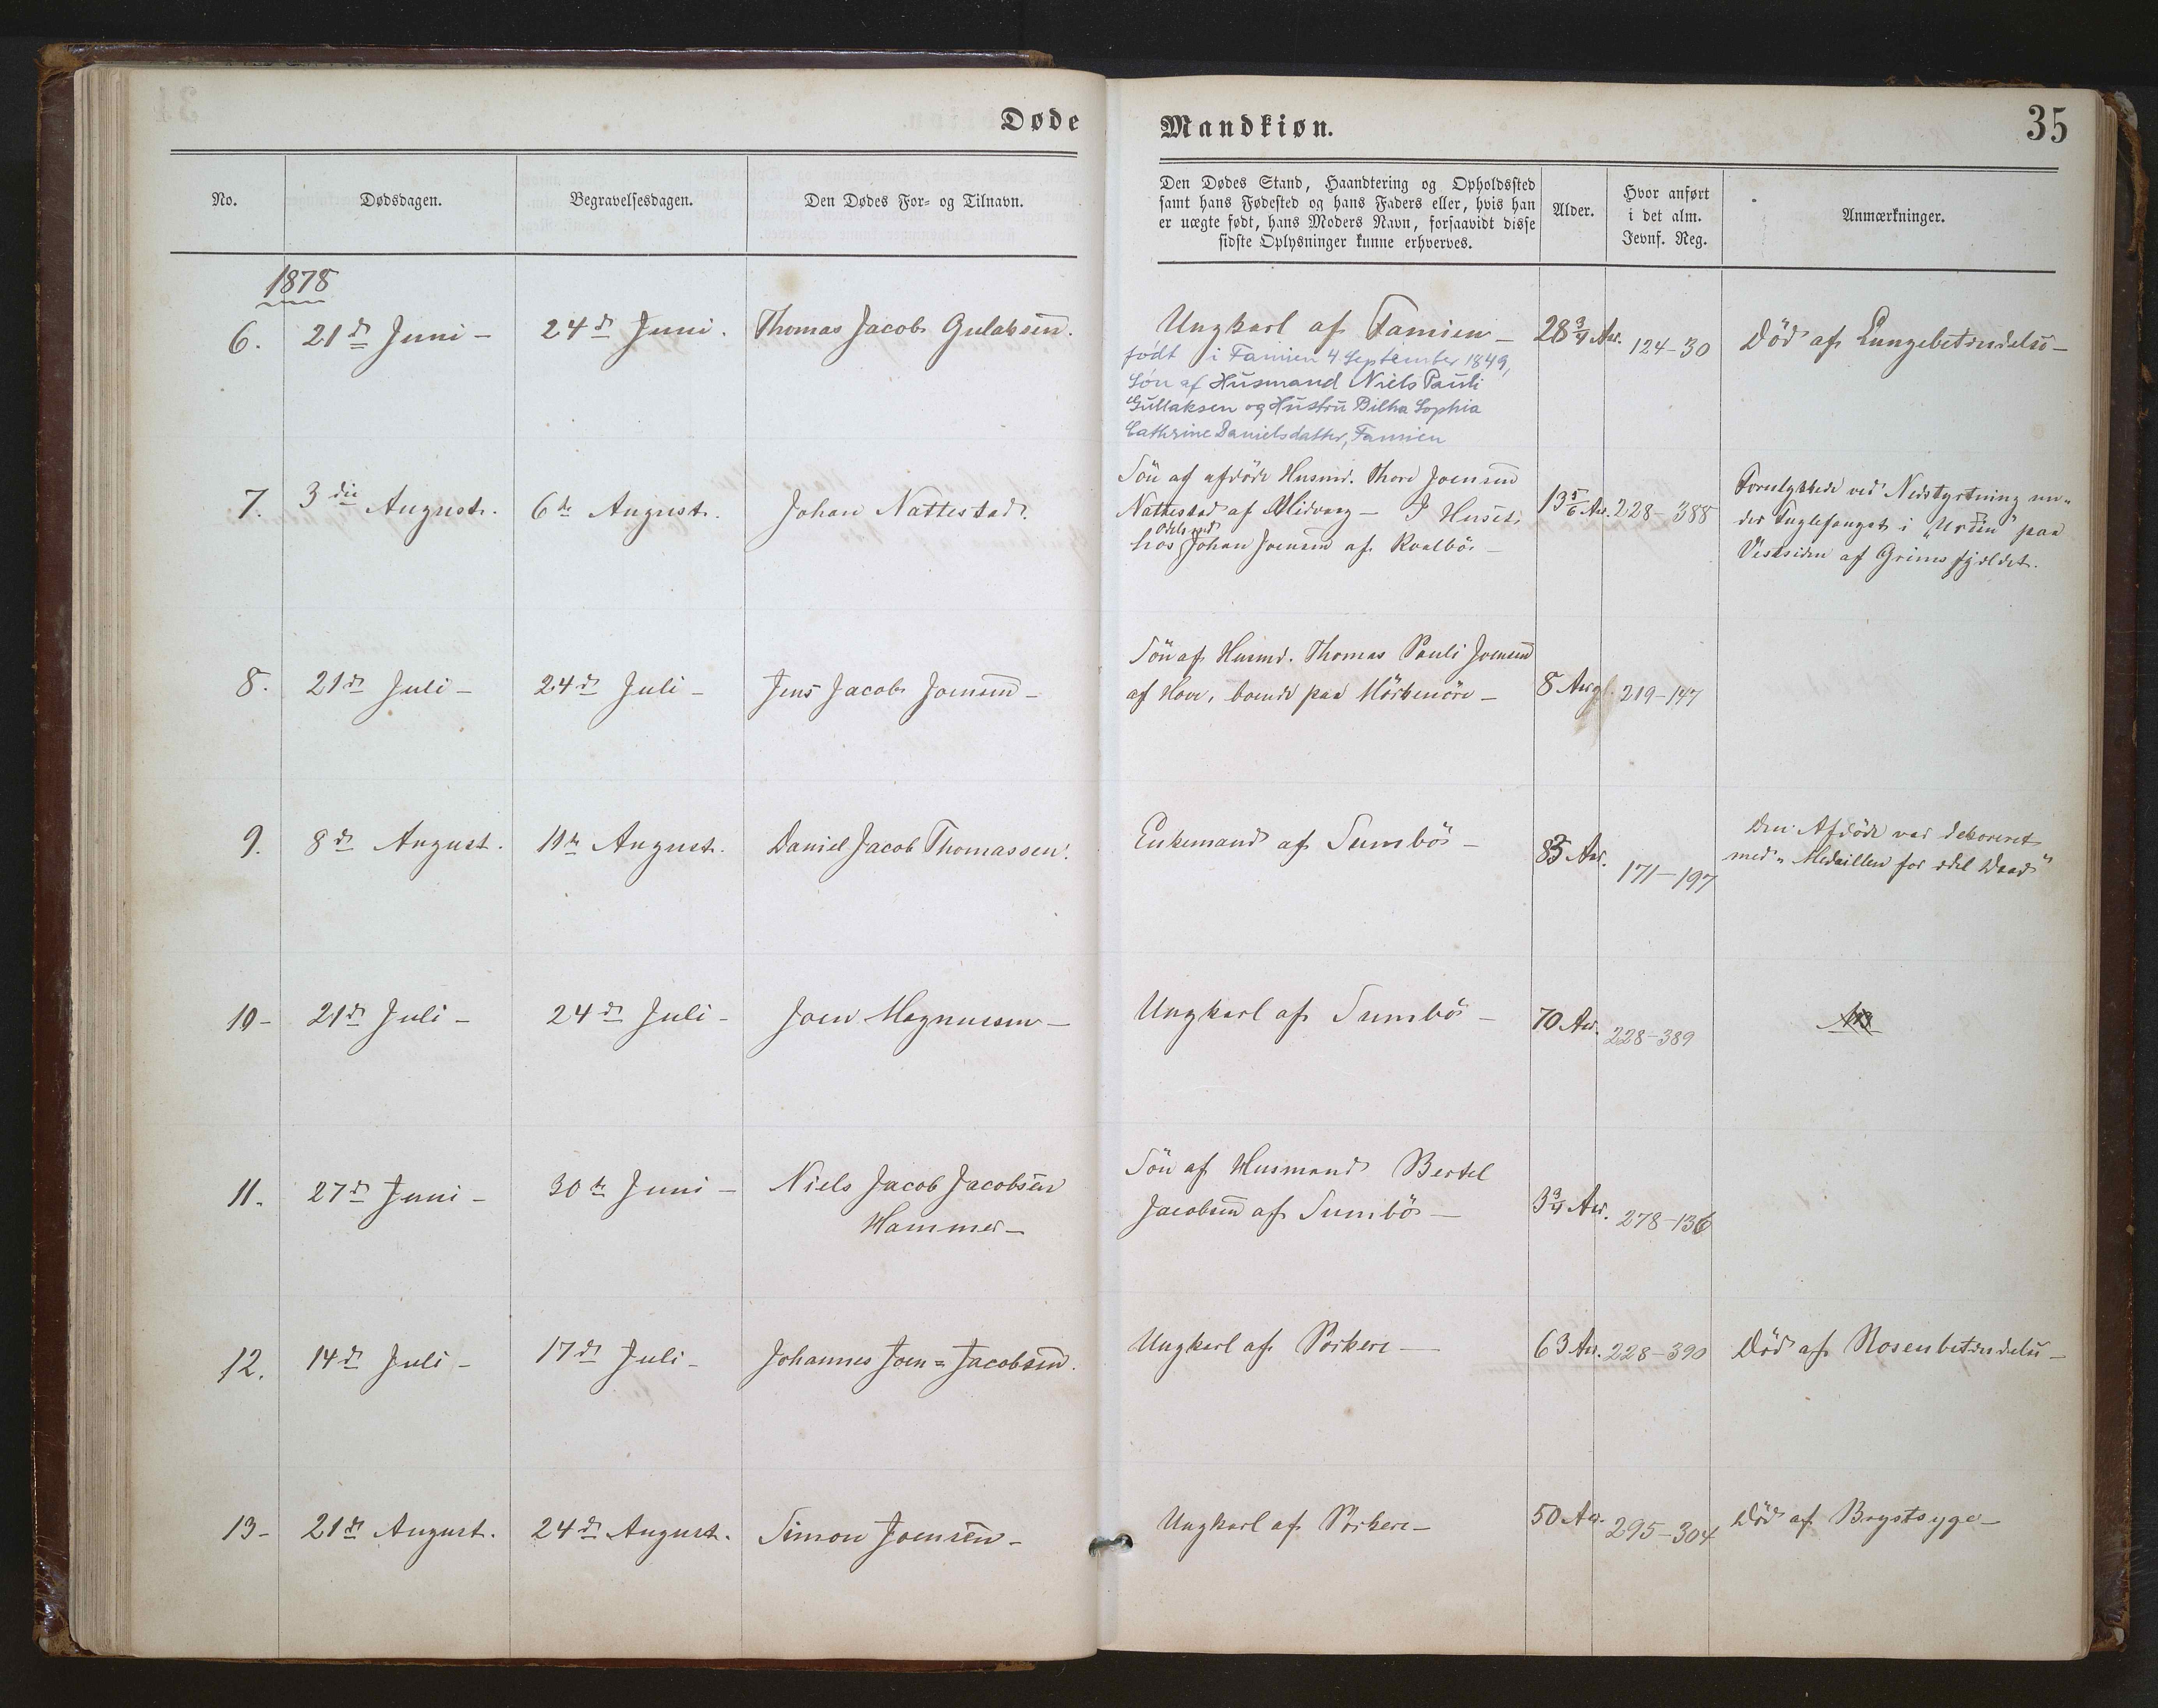 Døde Mandkiøn. 35
No. Dødsdagen. Begravelsesdagen. Den Dødes For- og Tilnavn.
Den Dødes Stand, Haandtering og Opholdssted
samt hans Fødested og hans Faders eller, hvis han
er uægte født, hans Moders Navn, forsaavidt disse
sidste Oplysninger kunne erhverves.
Alder.
Hvor anført
i det alm.
Jevnf. Reg.
Anmærkninger.
1878
6. 21de Juni - 24de Juni. Thomas Jacob Gulaksen. Ungkarl af Famien - 28 3/4 Aar. 124-30 Død af Lungebetændelse -
født i Famien 4 September 1849,
Søn af Husmand Niels Pauli
Gullaksen og Hustru Bilha Sophia
Cathrine Danielsdatter, Famien
7. 3die August. 6te August. Johan Nattestad. Søn af afdøde Husmd. Thore Joensen
Nattestad af Midvaag - I Huset
hos Odelsmd Johan Joensen af Kvalbø -
13 5/6 Aar. 228-388
Forulykkede ved Nedstyrtning un-
der Fuglefangst i "Urden" paa
Vestsiden af Grimsfjeldet.
8. 21de Juli - 24de Juli - Jens Jacob Joensen - Søn af Husmd. Thomas Pauli Joensen
af Hove, boende paa Mörkenöre - 8 Aar 219-147
9. 8de August. 11te August. Daniel Jacob Thomassen. Enkemand af Sumbø - 85 Aar. 171-197
Den Afdøde var dekoreret
med "Medaillen for ædel Daad"
10- 21de Juli - 24de Juli - Joen Magnussen - Ungkarl af Sumbø - 70 Aar. 228-389
11. 27de Juni - 30te Juni - Niels Jacob Jacobsen
Hammer -
Søn af Husmand Bertel
Jacobsen af Sumbø - 3 3/4 Aar. 278-136
12. 14de Juli - 17de Juli - Johannes Joen=Jacobsen. Ungkarl af Porkere - 63 Aar. 228-390 Død af Rosenbetændelse -
13- 21de August. 24de August. Simon Joensen - Ungkarl af Porkere - 50 Aar. 295-304 Død af Brystsyge -